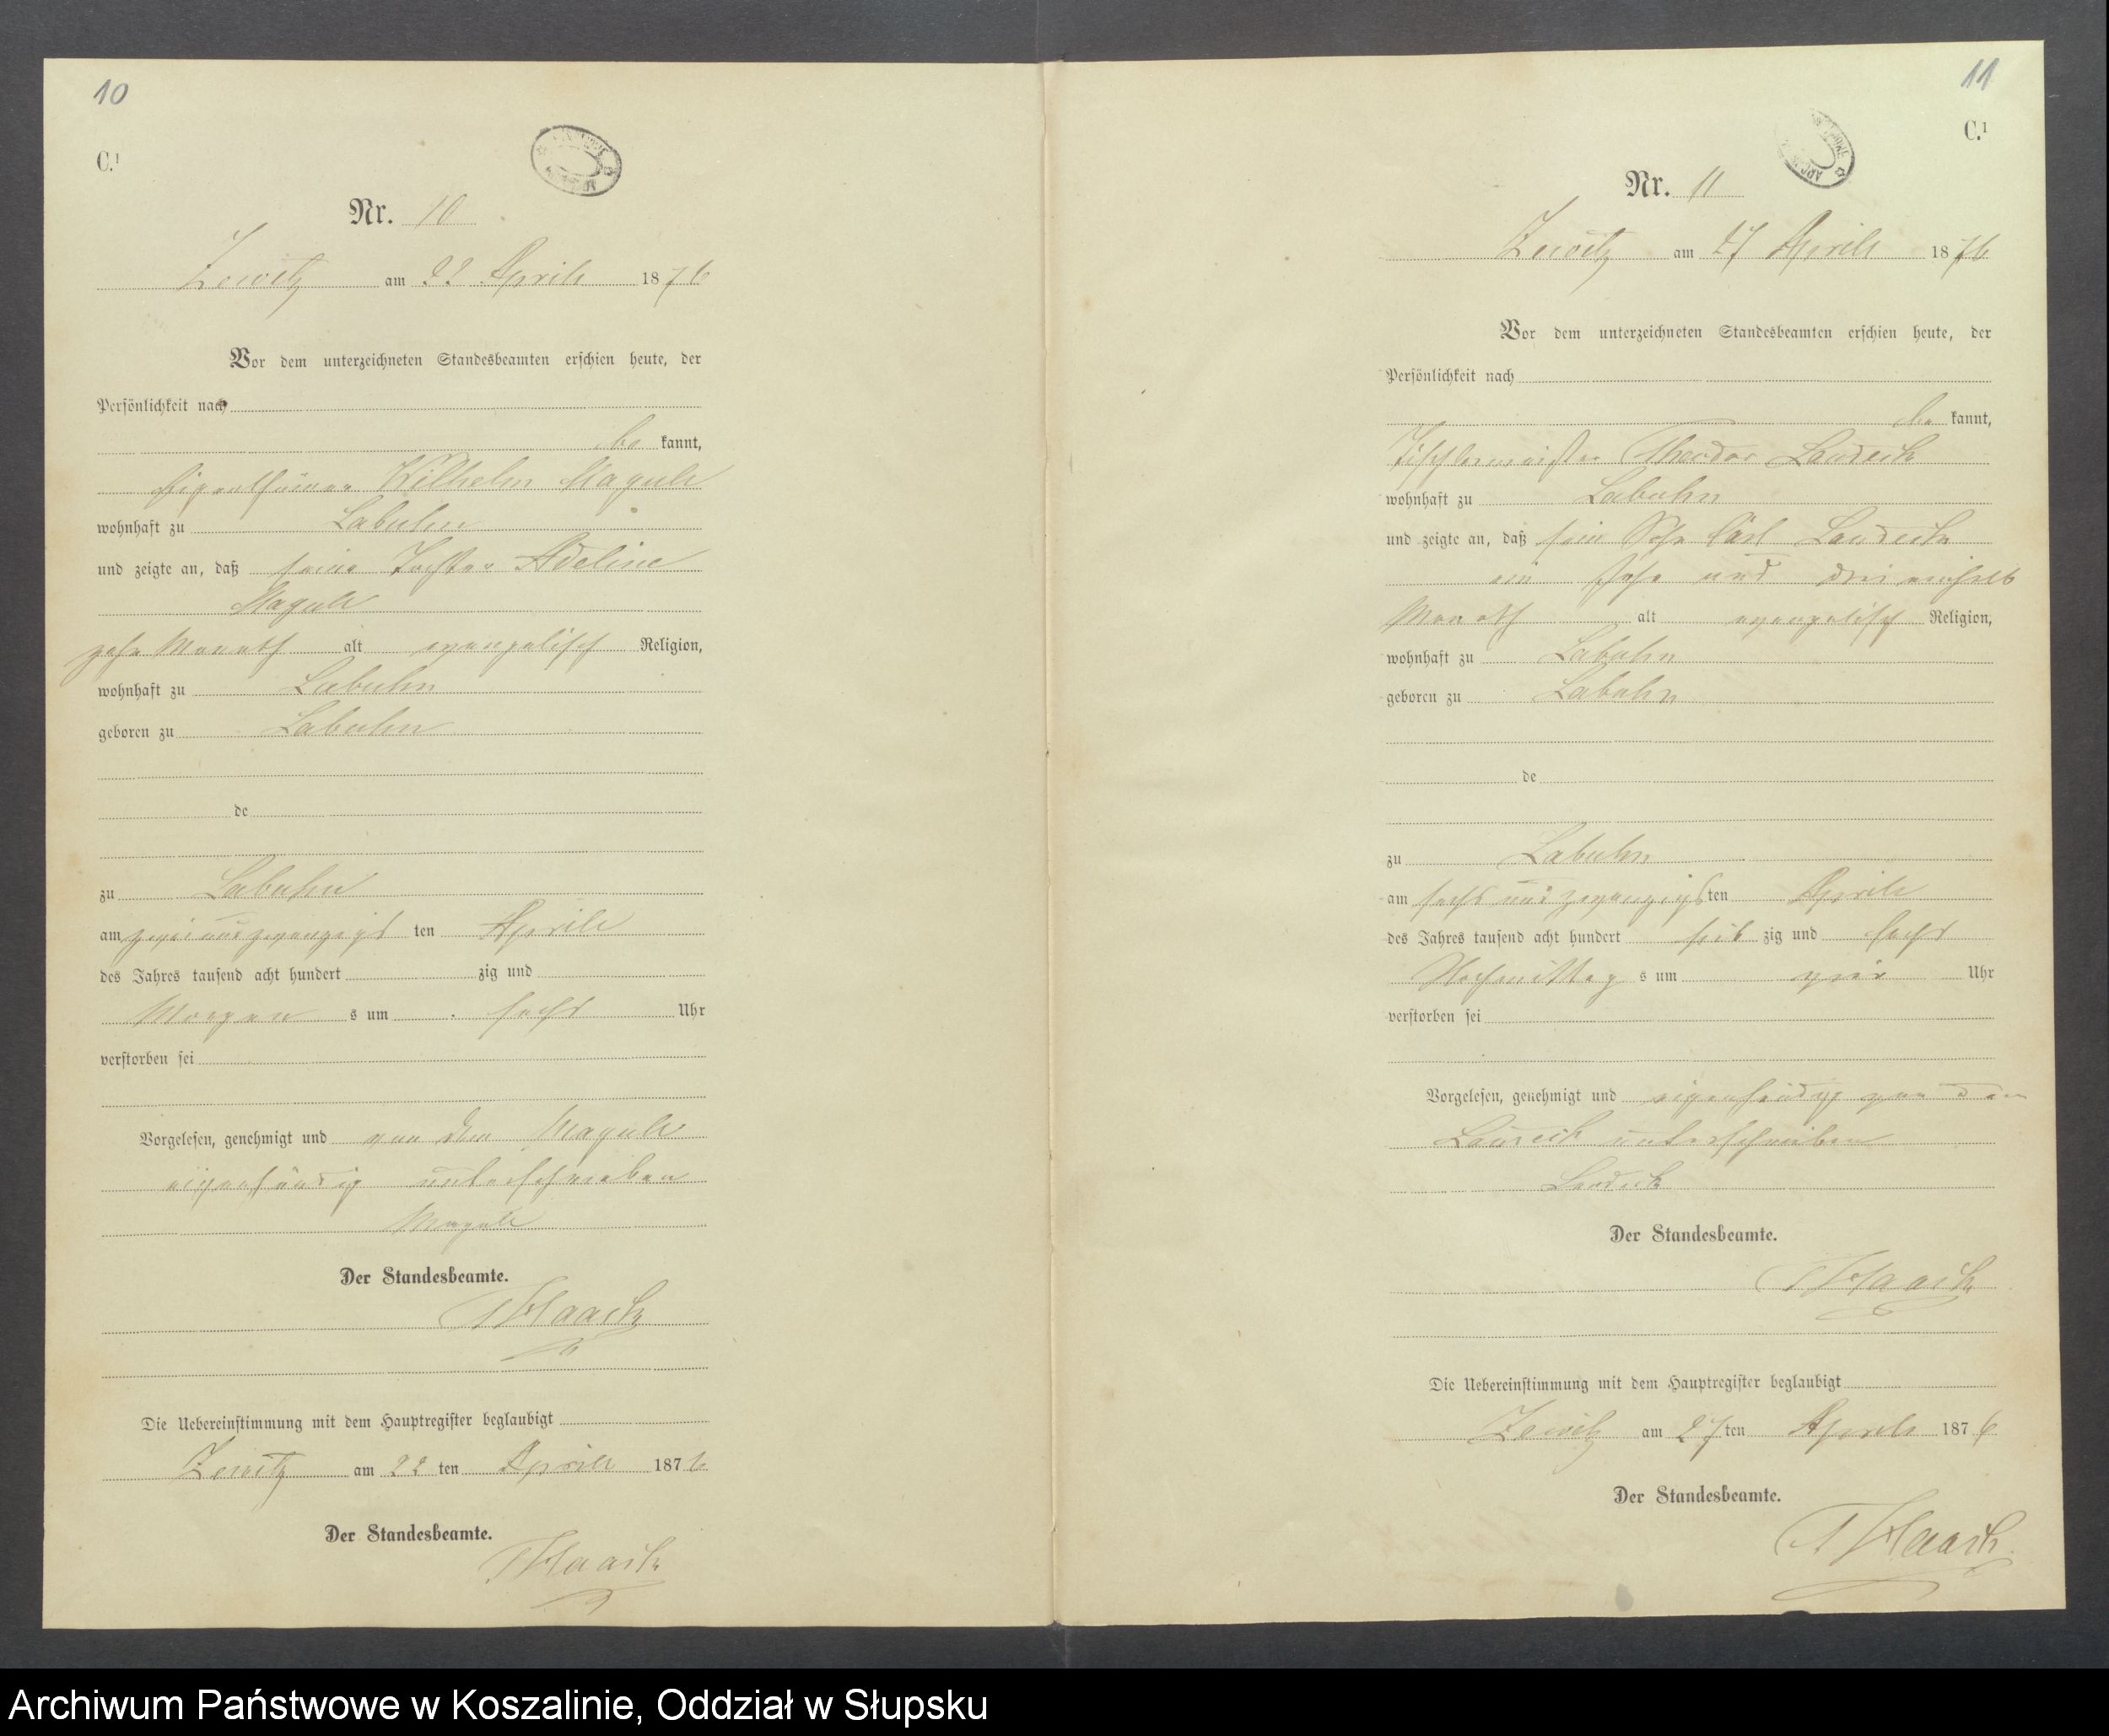 10
C.¹
Nr. 10
Zewitz am 22 April 1876
Vor dem unterzeichneten Standesbeamten erschien heute, der
Persönlichkeit nach
be kannt,
Eigenthümer Wilhelm
wohnhaft zu Labuhn
und zeigte an, daß seine Tochter Adeline
zehn Monath alt evangelisch Religion,
wohnhaft zu Labuhn
geboren zu Labuhn
de
zu Labuhn
am zwei und zwanzigs ten April
des Jahres tausend acht hundert zig und
Morgen s um sechs Uhr
verstorben sei
Vorgelesen, genehmigt und von dem
eigenhändig unterschrieben
Der Standesbeamte.
Haack
Die Uebereinstimmung mit dem Hauptregister beglaubigt
Zewitz am 22 ten April 1876
Der Standesbeamte.
Haack
11
C.¹
Nr. 11
Zewitz am 27 April 1876
Vor dem unterzeichneten Standesbeamten erschien heute, der
Persönlichkeit nach
be kannt,
Tischlermeister Theodor
wohnhaft zu Labuhn
und zeigte an, daß sein Sohn Carl
ein Jahr und
Monath alt evangelisch Religion,
wohnhaft zu Labuhn
geboren zu Labuhn
de
zu Labuhn
am sechs und zwanzigs ten April
des Jahres tausend acht hundert sieb zig und sechs
Nachmittag s um vier Uhr
verstorben sei
Vorgelesen, genehmigt und eigenhändig von dem
unterschrieben
Der Standesbeamte.
Haack
Die Uebereinstimmung mit dem Hauptregister beglaubigt
Zewitz am 27 ten April 1876
Der Standesbeamte.
Haack
Archiwum Państwowe w Koszalinie, Oddział w Słupsku